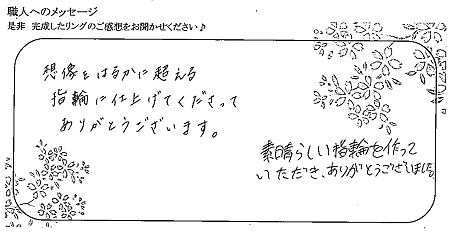 職人へのメッセージ
是非 完成したリングのご感想をお聞かせください♪
想像をはるかに超える
指輪に仕上げてくださって
ありがとうございます。
素晴らしい指輪を作って
いただき、ありがとうございました。